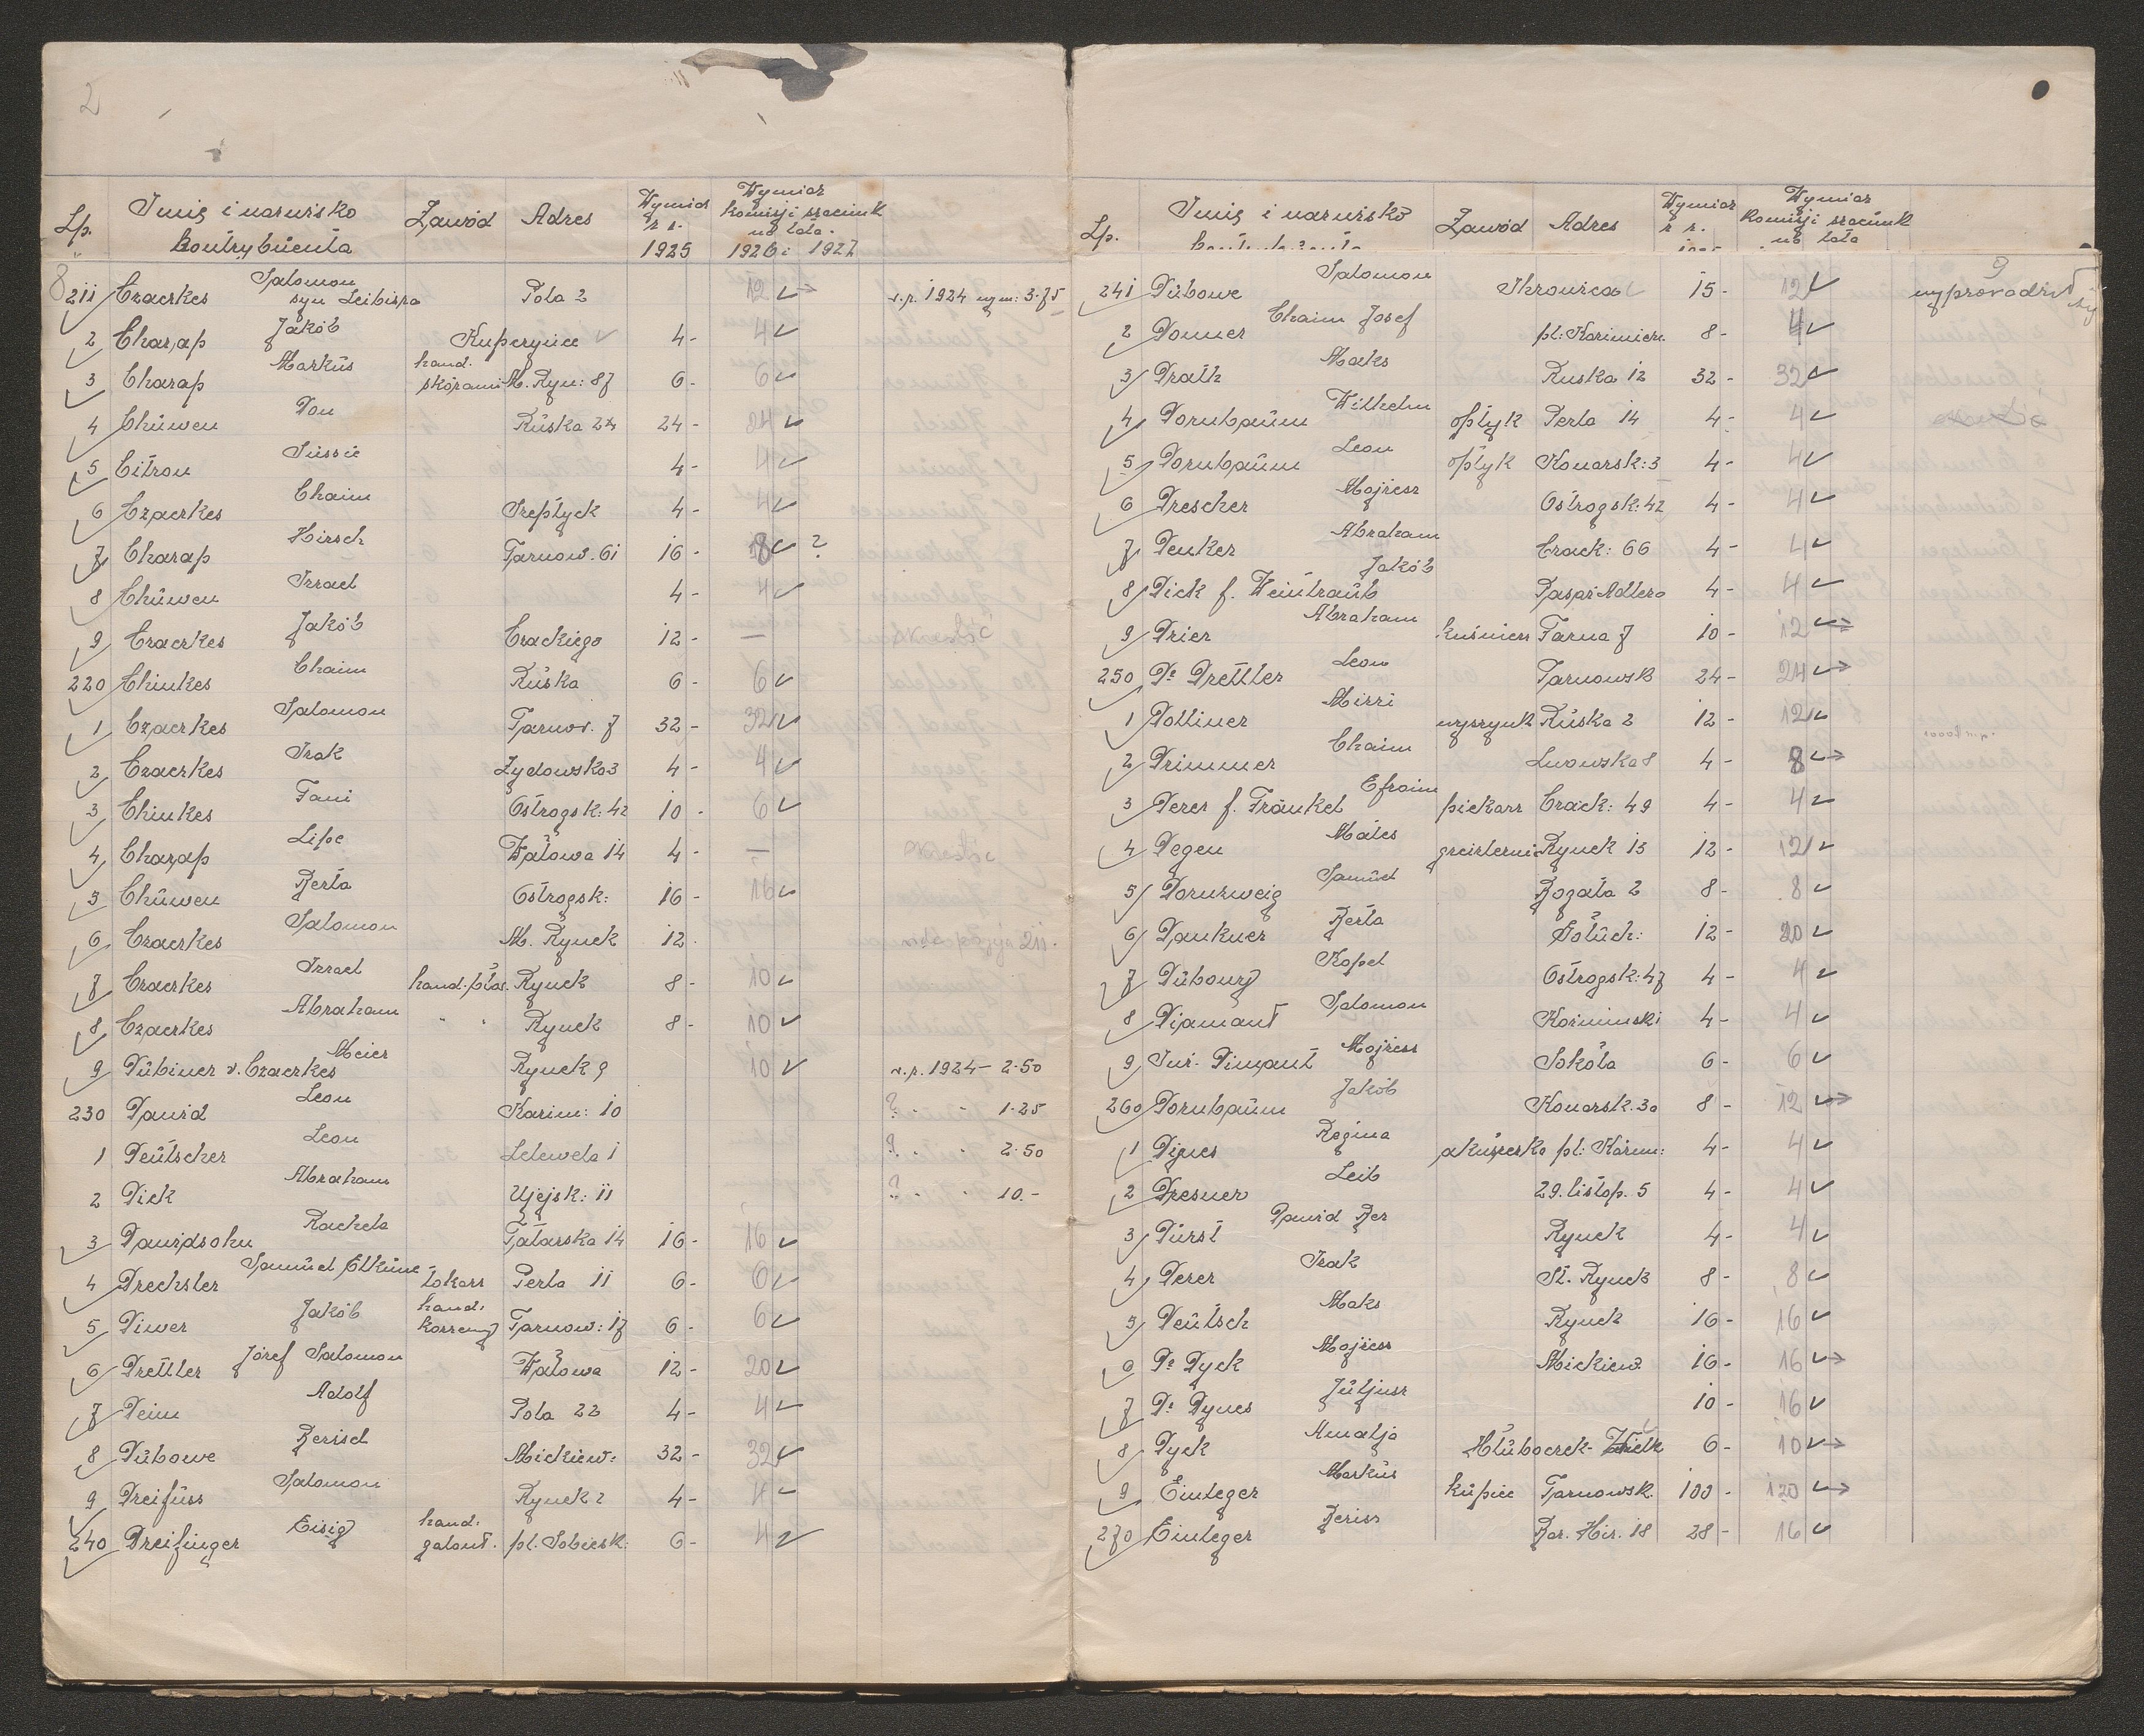 2
Lp. Imię i nazwisko kontrybuenta Zawód Adres Wymiar z r. 1925 Wymiar komisji szacunk na lata 1926 i 1927
8
211 Czaczkes Salomon syn Leibisza Pola 2 12 v.p. 1924 wym: 3.75
2 Charap Jakób Kupczyńce 4- 4
3 Charap Markus hand. skórami M. Ryn: 87 6- 6
4 Chuwen Don Ruska 24 24- 24
5 Citron Sussie 4- 4
6 Czaczkes Chaim Szeptyck 4- 4
7 Charap Hirsch Tarnow. 61 16- 18 ?
8 Chuwen Izrael 4- 4
9 Czaczkes Jakób Czackiego 12- —
220 Chinkes Chaim Ruska 6- 6
1 Czaczkes Salomon Tarnow. 7 32- 32
2 Czaczkes Izak Zydowska 3 4- 4
3 Chinkes Fani Ostrogsk: 42 10- 6
4 Charap Lipe Wałowa 14 4- —
5 Chuwen Berta Ostrogsk: 16- 16
6 Czaczkes Salomon M. Rynek 12. 211.
7 Czaczkes Izrael hand. płót. Rynek 8- 10
8 Czaczkes Abraham " " Rynek 8- 10
9 Dubiner v. Czaczkes Meier Rynek 9 10 v.p. 1924 - 2.50
230 Dawid Leon Kazim: 10 ? " " 1.25
1 Deutscher Leon Lelewela 1 ? " " 2.50
2 Dick Abraham Ujejsk: 11 ? " " 10.-
3 Dawidsohn Rachela Tatarska 14 16- 16
4 Drechsler Samuel Elkune tokarz Perla 11 6- 6
5 Diwer Jakób hand: korzenny Tarnow: 17 6- 6
6 Drettler Józef Salomon Wałowa 12- 20
7 Deim Adolf Pola 22 4- 4
8 Dubowe Berisch Mickiew: 32- 32
9 Dreifuss Salomon Rynek 2 4- 4
240 Dreifinger Eisig hand: galant. pl. Sobiesk: 6- 4
Lp. Imię i nazwisko Zawód Adres Wymiar z r. Wymiar komisji szacunk na lata
9
241 Dubowe Salomon Ihrowica 15- 12 wyprowadził się
2 Donner Chaim Josef pl: Kazimierz. 8- 4
3 Drath Maks Ruska 12 32- 32
4 Dornbaum Wilhelm optyk Perla 14 4- 4
5 Dornbaum Leon optyk Konarsk: 3 4- 4
6 Drescher Mojżesz Ostrogsk: 42 4- 4
7 Denker Abraham Czack: 66 4- 4
8 Dick f. Weintraub Jakób Pasaż Adlera 4- 4
9 Drier Abraham kuśnierz Tarna 7 10- 12
250 Dr Drettler Leon Tarnowsk 24- 24
1 Dolliner Mizzi wyszynk Ruska 2 12- 12
2 Drimmer Chaim Lwowska 8 4- 8
3 Derer f. Fränkel Efroim piekarz Czack: 49 4- 4
4 Degen Males greizlernia Rynek 13 12- 12
5 Dornzweig Samuel Bogata 2 8- 8
6 Dankner Berta Gołuch: 12- 20
7 Dubowy Kopel Ostrogsk: 47 4- 4
8 Diamant Salomon Kozminski 4- 4
9 Inż. Dimant Mojżesz Sokoła 6- 6
260 Dornbaum Jakób Konarsk. 30 8- 12
1 Dynes Regina akuszerka pl: Kazim: 4- 4
2 Dresner Leib 29. listop. 5 4- 4
3 Durst Dawid Ber Rynek 4- 4
4 Derer Izak St. Rynek 8- 8
5 Deutsch Maks Rynek 16- 16
6 Dr Dyck Mojżesz Mickiew. 16- 16
7 Dr Dynes Juljusz 10- 16
8 Dyck Amalja Hłuboczek- Wielk 6- 10
9 Einleger Markus kupiec Tarnowsk. 100- 120
270 Einleger Berisz Bar. Hir. 18 28- 16